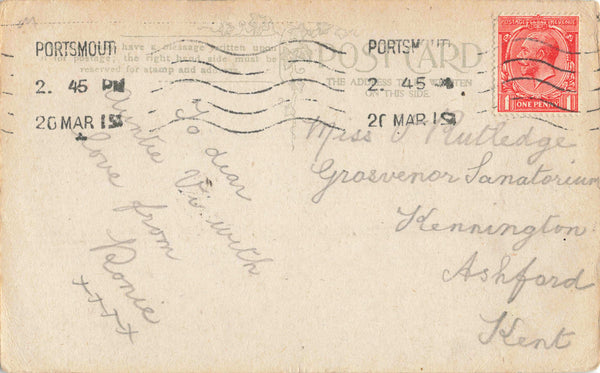 PORTSMOUT
2. 45 PM
20 MAR 19
PORTSM UT
2. 45
20 MAR 19
have a message written upon
for postage, the right hand side must be
reserved for stamp and
POST CARD
THE ADDRESS TO BE WRITTEN
ON THIS SIDE.
POSTAGE REVENUE
1 ONE PENNY 1
To dear
Auntie Vi. with
love from
Ronie
++++x
Miss V Rutledge
Grosvenor Sanatorium
Kennington
Ashford
Kent